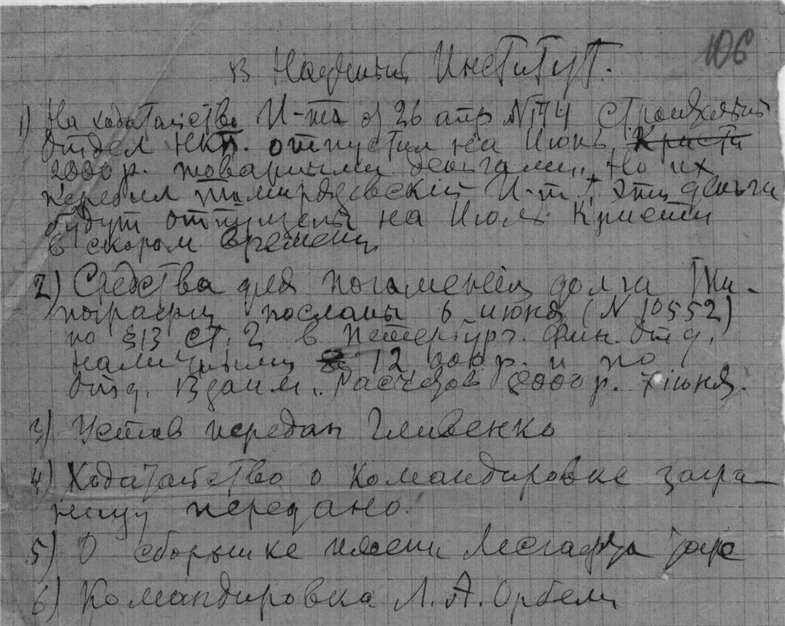 106
В Научный Институт.
1) На ходатайство И-та от 26 апр N 744 Строительный
отдел НКП. отпустил на Июнь Кристи
2000 р. товарными деньгами, но их
перебил Тимирязевский И-т, эти деньги
будут отпущены на Июль Кристи
в скором времени.
2) Средства для погашения долга Ти-
пографии посланы 6 июня (N 10552)
по §13 ст. 2 в Петербург. фин. отд.
наличными 12 000 р. и по
отд. Взаим. Расчетов 8000 р. 7 июня.
3) Устав передан Гливенко
4) Ходатайство о командировке загра-
ницу передано.
5) О сборнике имени Лесгафта тоже
6) Командировка Л. А. Орбели